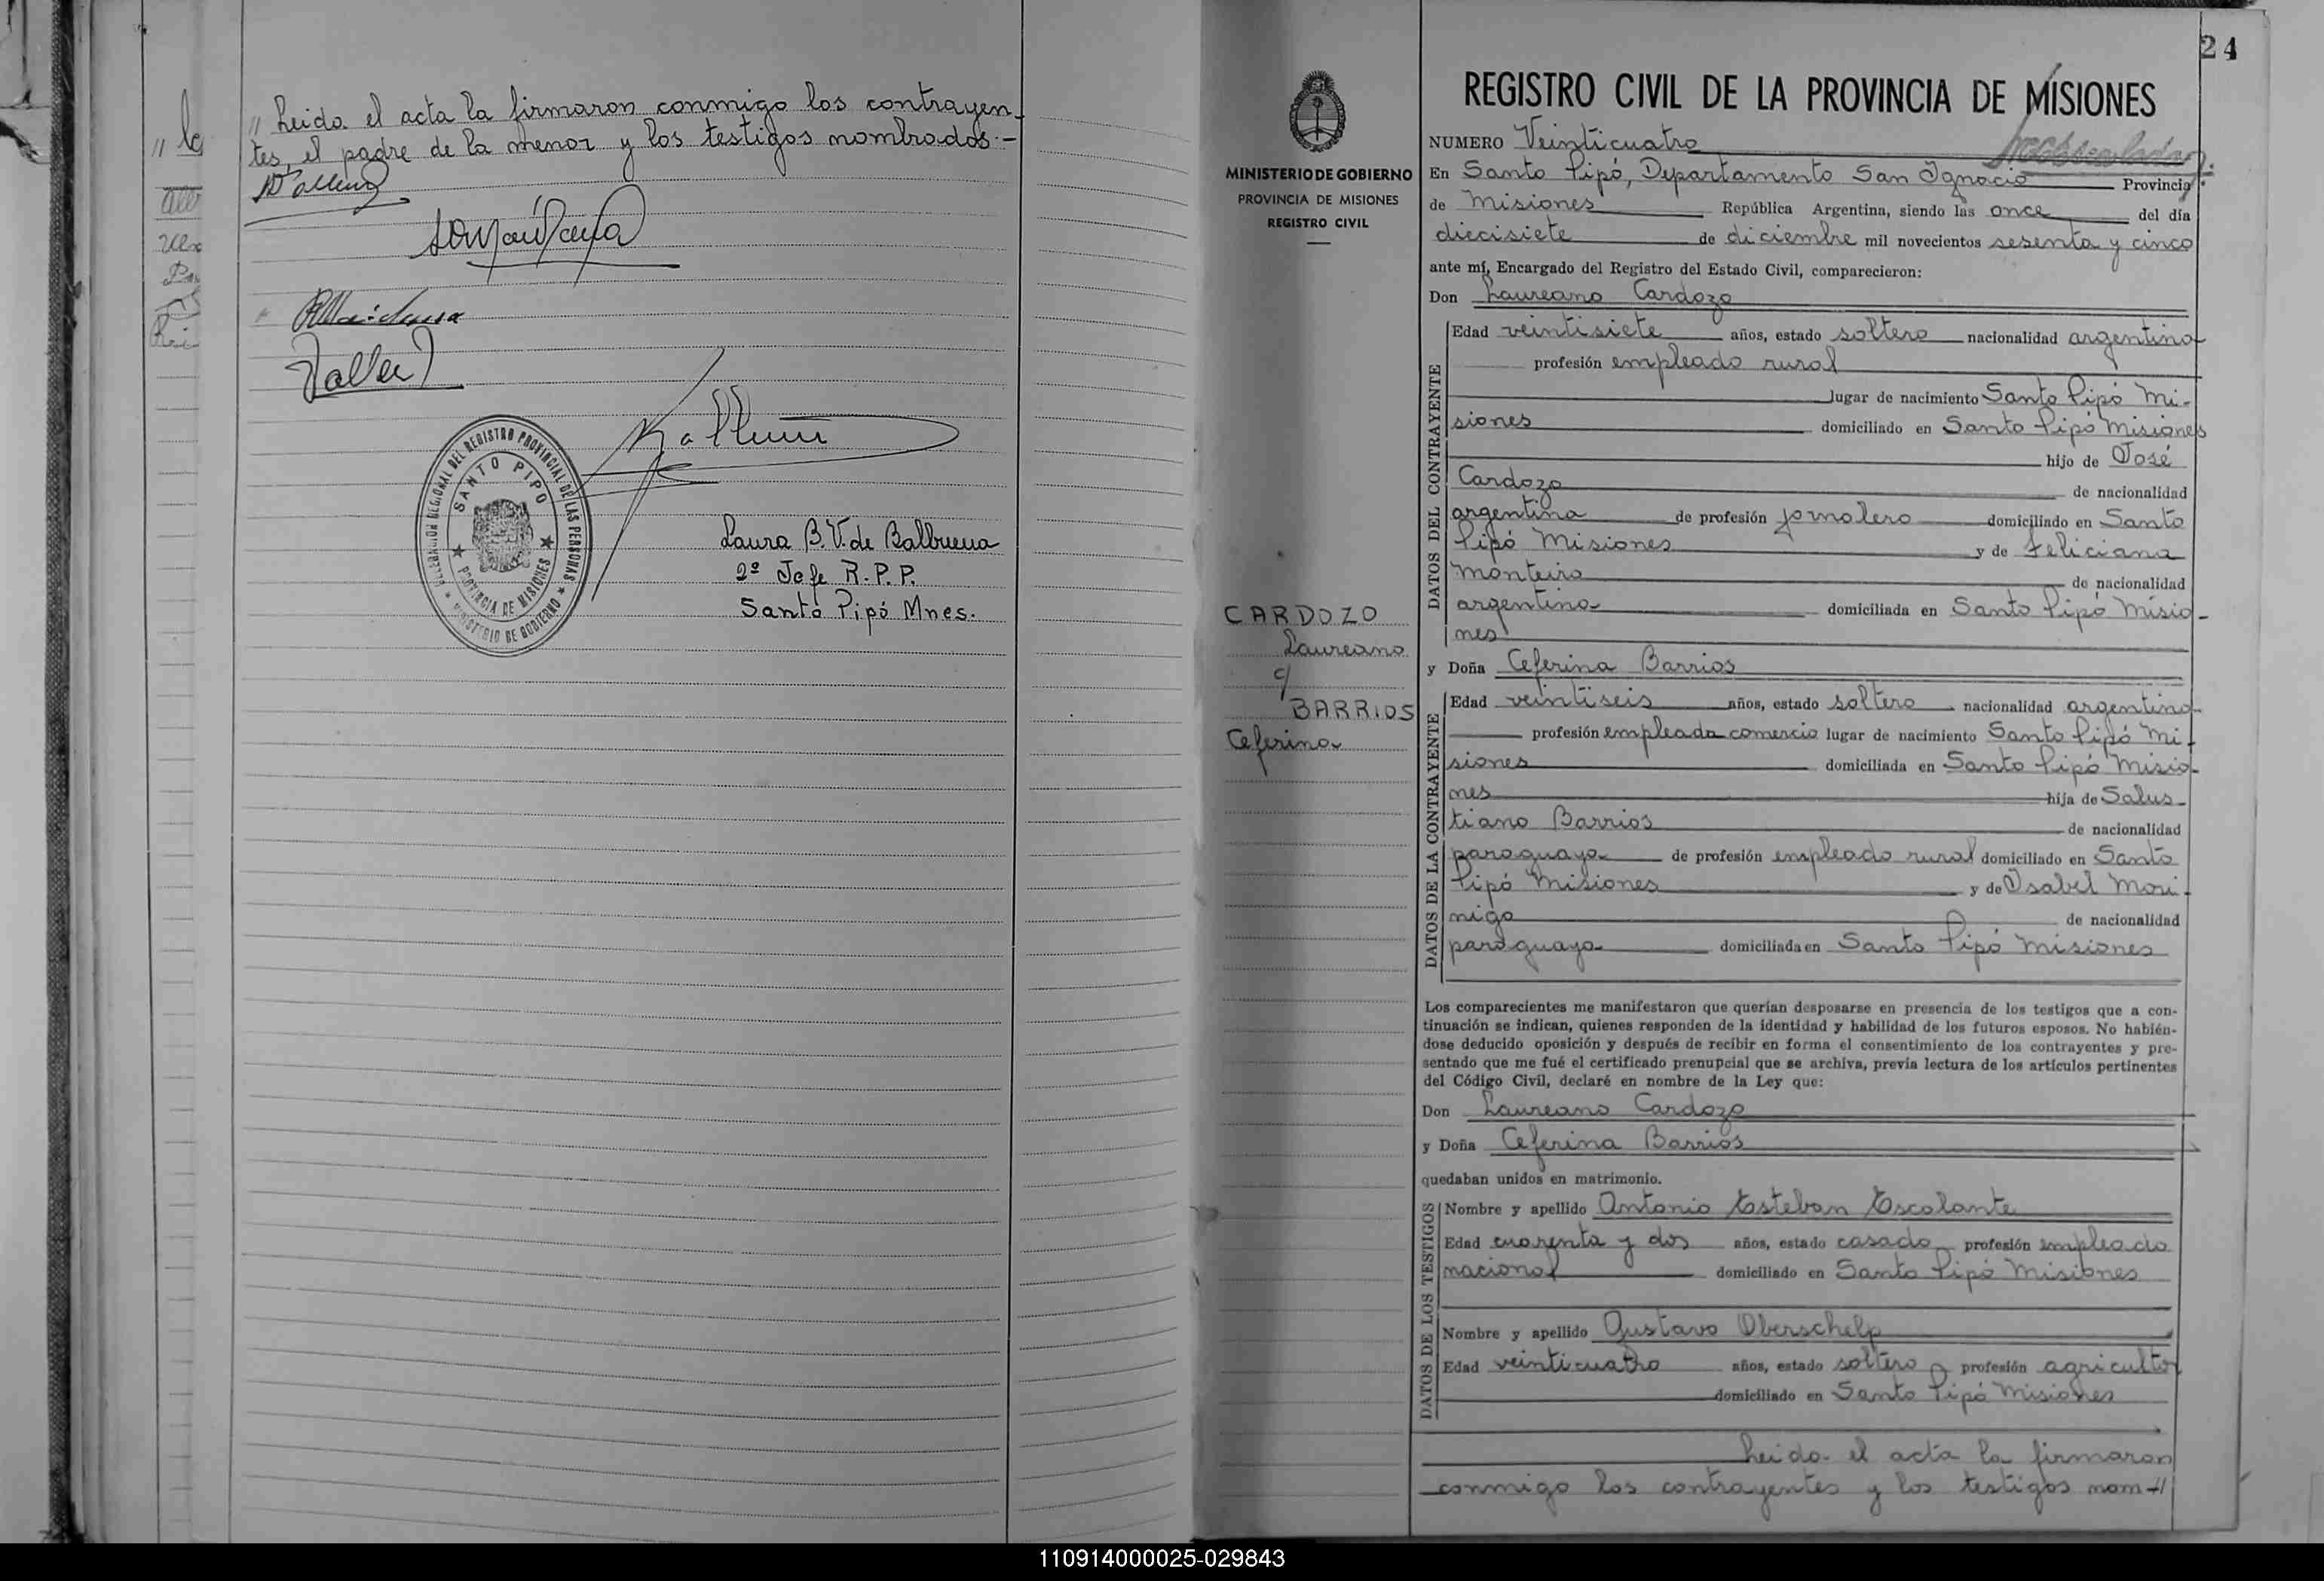 " Leida el acta la firmaron conmigo los contrayen-
tes, el padre de la menor y los testigos nombrados.-
DELEGACION REGIONAL DEL REGISTRO PROVINCIAL DE LAS PERSONAS
SANTO PIPO
PROVINCIA DE MISIONES
MINISTERIO DE GOBIERNO
Laura B. V. de Balbuena
2º Jefe R.P.P.
Santo Pipó Mnes.
MINISTERIO DE GOBIERNO
PROVINCIA DE MISIONES
REGISTRO CIVIL
CARDOZO
Laureano
c/
BARRIOS
Ceferina
24
REGISTRO CIVIL DE LA PROVINCIA DE MISIONES
NUMERO Veinticuatro
En Santo Pipó, Departamento San Ignacio Provincia
de Misiones República Argentina, siendo las once del día
diecisiete de diciembre mil novecientos sesenta y cinco
ante mí, Encargado del Registro del Estado Civil, comparecieron:
Don Laureano Cardozo
DATOS DEL CONTRAYENTE
Edad veintisiete años, estado soltero nacionalidad argentina
profesión empleado rural
lugar de nacimiento Santo Pipó Mi-
siones domiciliado en Santo Pipó Misiones
hijo de José
Cardozo de nacionalidad
argentina de profesión jornalero domiciliado en Santo
Pipó Misiones y de Feliciana
Monteiro de nacionalidad
argentina domiciliada en Santo Pipó Misio-
nes
y Doña Ceferina Barrios
DATOS DE LA CONTRAYENTE
Edad veintiseis años, estado soltera nacionalidad argentina
profesión empleada comercio lugar de nacimiento Santo Pipó Mi-
siones domiciliada en Santo Pipó Misio-
nes hija de Salus-
tiano Barrios de nacionalidad
paraguaya de profesión empleado rural domiciliado en Santo
Pipó Misiones y de Isabel Mori-
nigo de nacionalidad
paraguaya domiciliada en Santo Pipó Misiones
Los comparecientes me manifestaron que querían desposarse en presencia de los testigos que a con-
tinuación se indican, quienes responden de la identidad y habilidad de los futuros esposos. No habién-
dose deducido oposición y después de recibir en forma el consentimiento de los contrayentes y pre-
sentado que me fué el certificado prenupcial que se archiva, previa lectura de los artículos pertinentes
del Código Civil, declaré en nombre de la Ley que:
Don Laureano Cardozo
y Doña Ceferina Barrios
quedaban unidos en matrimonio.
DATOS DE LOS TESTIGOS
Nombre y apellido Antonio Esteban Escalante
Edad cuarenta y dos años, estado casado profesión empleado
nacional domiciliado en Santo Pipó Misiones
Nombre y apellido Gustavo Oberschelp
Edad veinticuatro años, estado soltero profesión agricultor
domiciliado en Santo Pipó Misiones
Leida el acta la firmaron
conmigo los contrayentes y los testigos nom-//
110914000025-029843